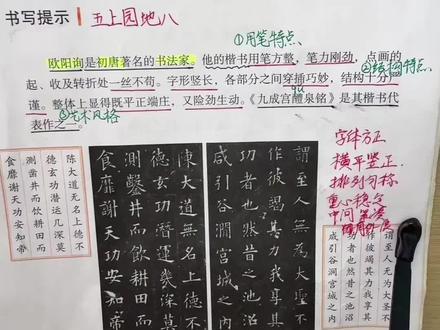 书写提示 五上园地八
①用笔特点
欧阳询是初唐著名的书法家。他的楷书用笔方整，笔力刚劲，点画的
②结构特点
起、收及转折处一丝不苟。字形竖长，各部分之间穿插巧妙，结构十分
谨。整体上显得既平正端庄，又险劲生动。《九成宫醴泉铭》是其楷书代
表作之一。
③艺术风格
字体方正
横平竖正
排列匀称
重心稳定
中间
谓至人无为大圣不
作彼竭其力我享其
功者也然昔之池沼
咸引谷涧宫城之内
謂至人無為大聖不
作彼竭其力我享其
功者也然昔之池沼
咸引谷澗宮城之內
陳大道無名上德不
德玄功潛運幾深莫
測鑿井而飲耕田而
食靡謝天功安知帝
陈大道无名上德不
德玄功潜运几深莫
测凿井而饮耕田而
食靡谢天功安知帝